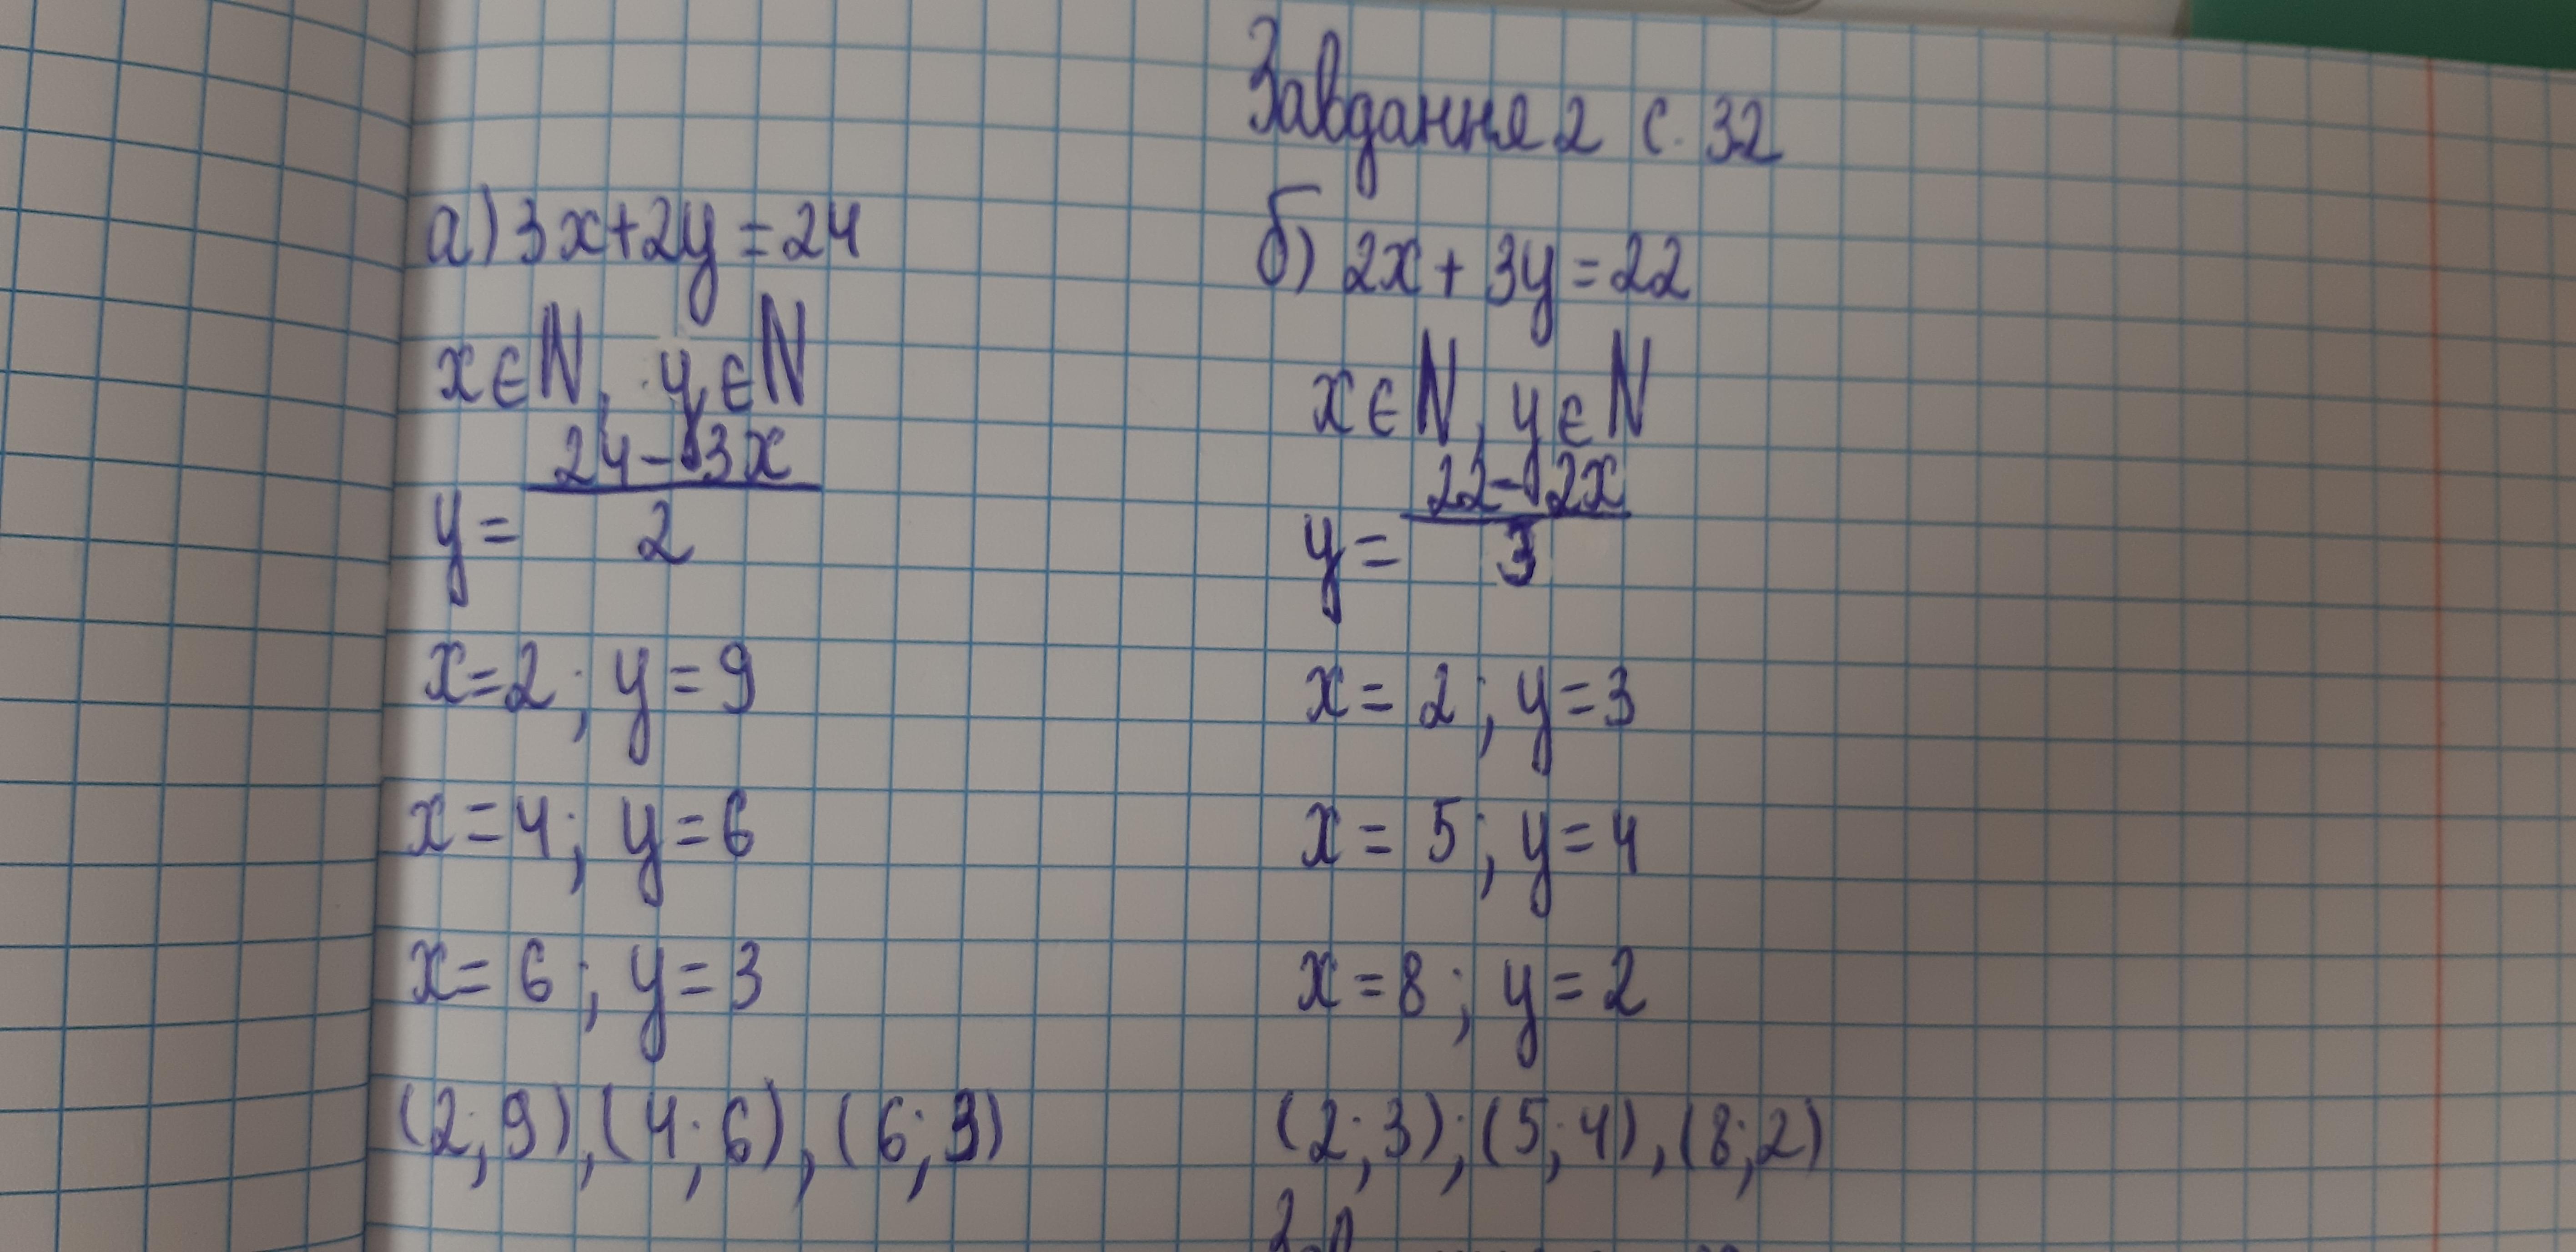 Завдання 2 с. 32
а) 3x+2y=24
x∈N, y∈N
y = (24-3x)/2
x=2; y=9
x=4; y=6
x=6; y=3
(2;9), (4;6), (6;3)
б) 2x+3y=22
x∈N, y∈N
y = (22-2x)/3
x=2; y=3
x=5; y=4
x=8; y=2
(2;3); (5;4), (8;2)